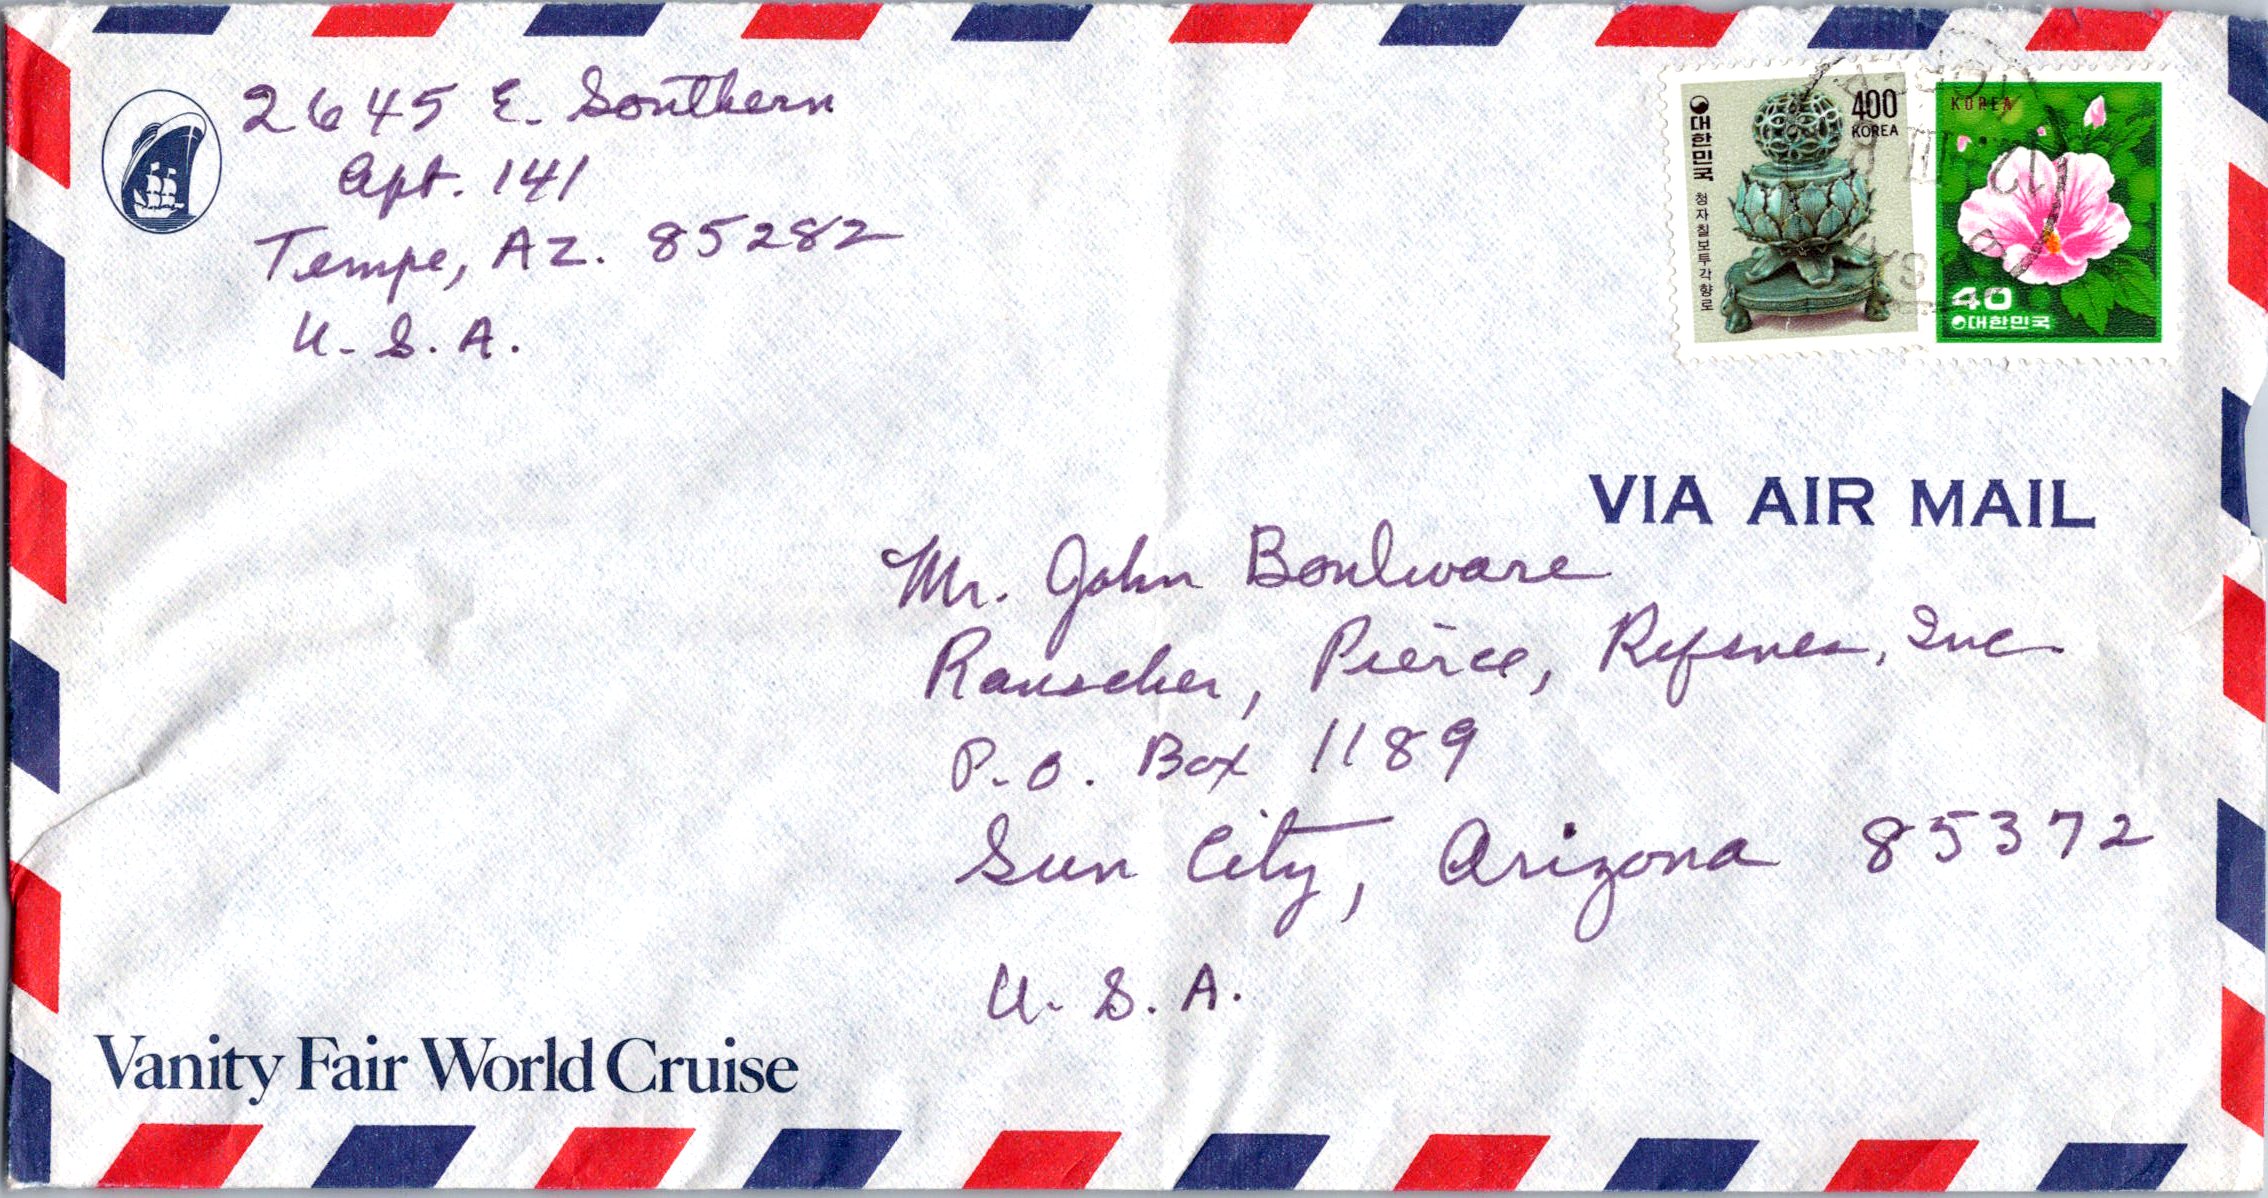 2645 E. Southern
Apt. 141
Tempe, AZ. 85282
U.S.A.
대한민국
청자칠보투각향로
400
KOREA
KOREA
40
대한민국
VIA AIR MAIL
Mr. John Boulware
Rauscher, Pierce, Refsnes, Inc.
P.O. Box 1189
Sun City, Arizona 85372
U.S.A.
Vanity Fair World Cruise